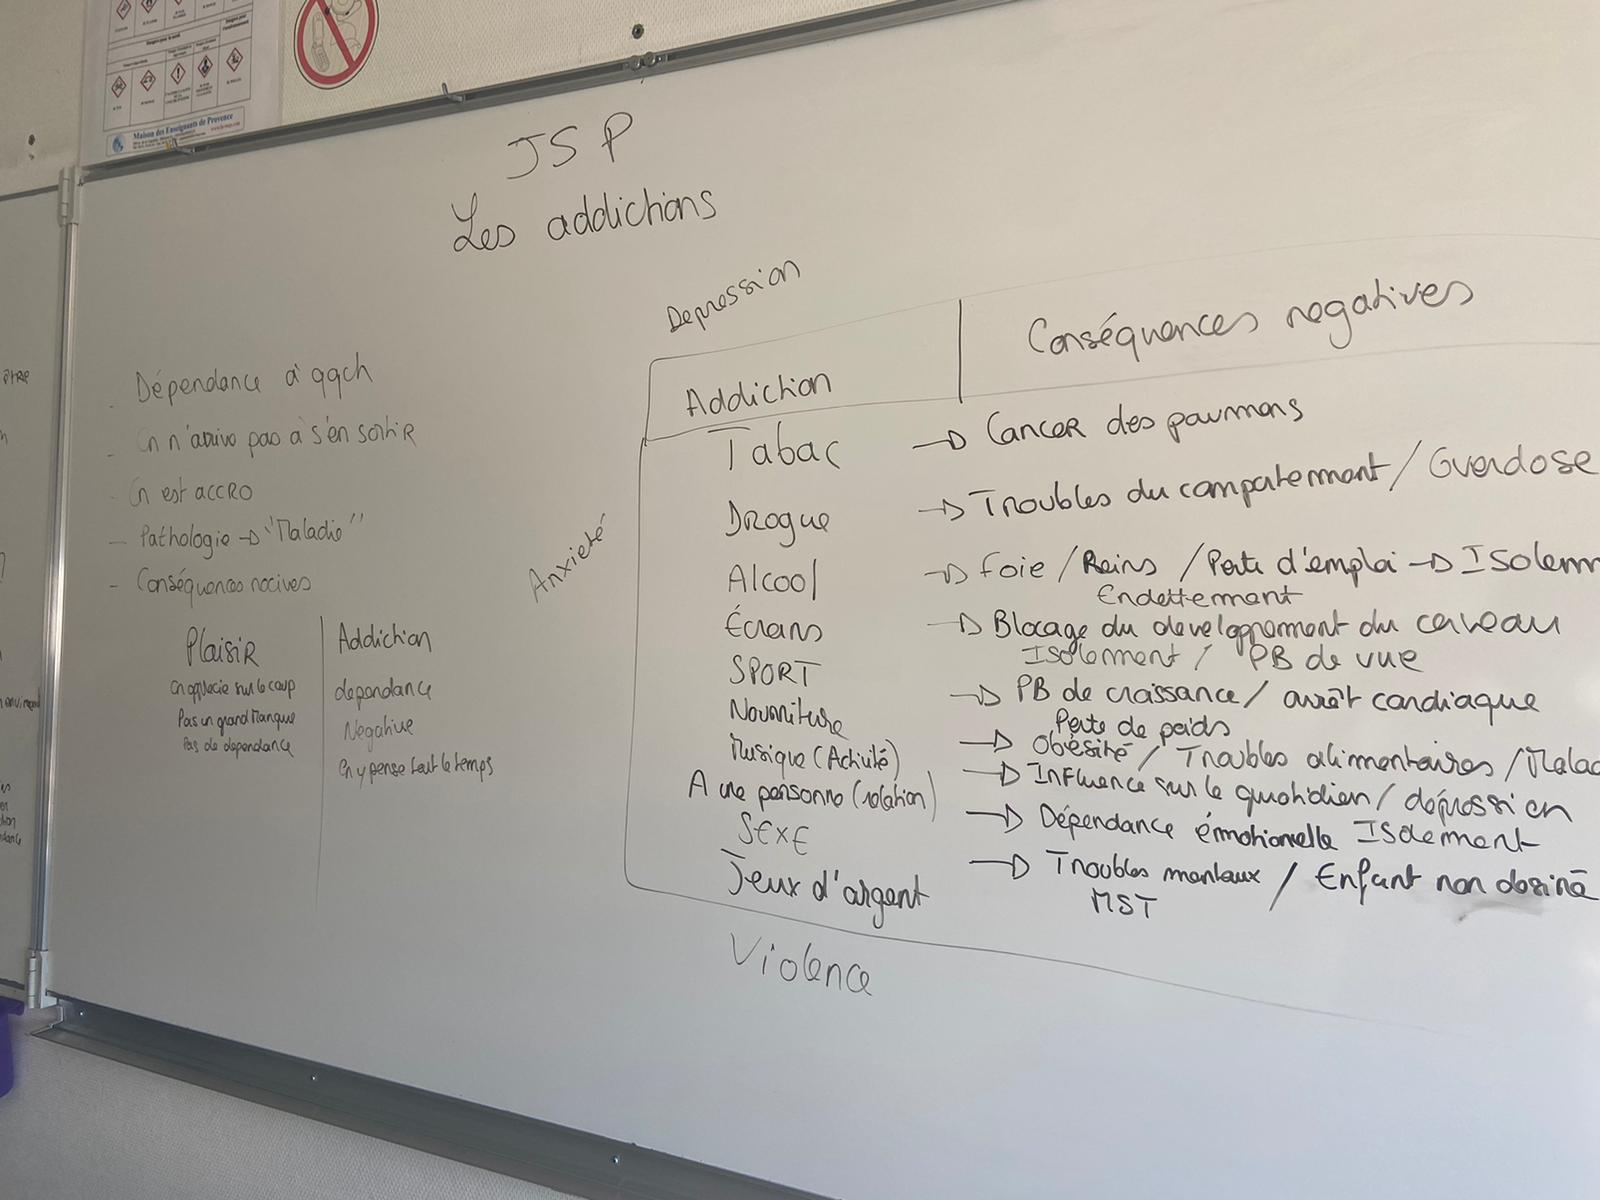 Maison des Enseignants de Provence
JSP
Les addictions
Dépendance à qqch
On n'arrive pas à s'en sortir
On est accro
Pathologie → "Maladie"
Conséquences nocives
Plaisir | Addiction
On apprécie sur le coup
Pas un grand manque
Pas de dependance
dependance
Négative
On y pense tout le temps
Depression
Anxieté
Addiction | Conséquences negatives
Tabac → Cancer des paumons
Drogue → Troubles du comportement / Overdose
Alcool → Foie / Reins / Perte d'emploi → Isolem
Endettement
Écrans → Blocage du developpement du cerveau
Isolement / PB de vue
SPORT → PB de croissance / arrêt cardiaque
Perte de poids
Nourriture → Obésité / Troubles alimentaires / Malad
Musique (Activité) → Influence sur le quotidien / dépression
A une personne (relation) → Dépendance émotionelle Isolement
SEXE → Troubles mentaux / Enfant non désiré
MST
Jeux d'argent
Violence